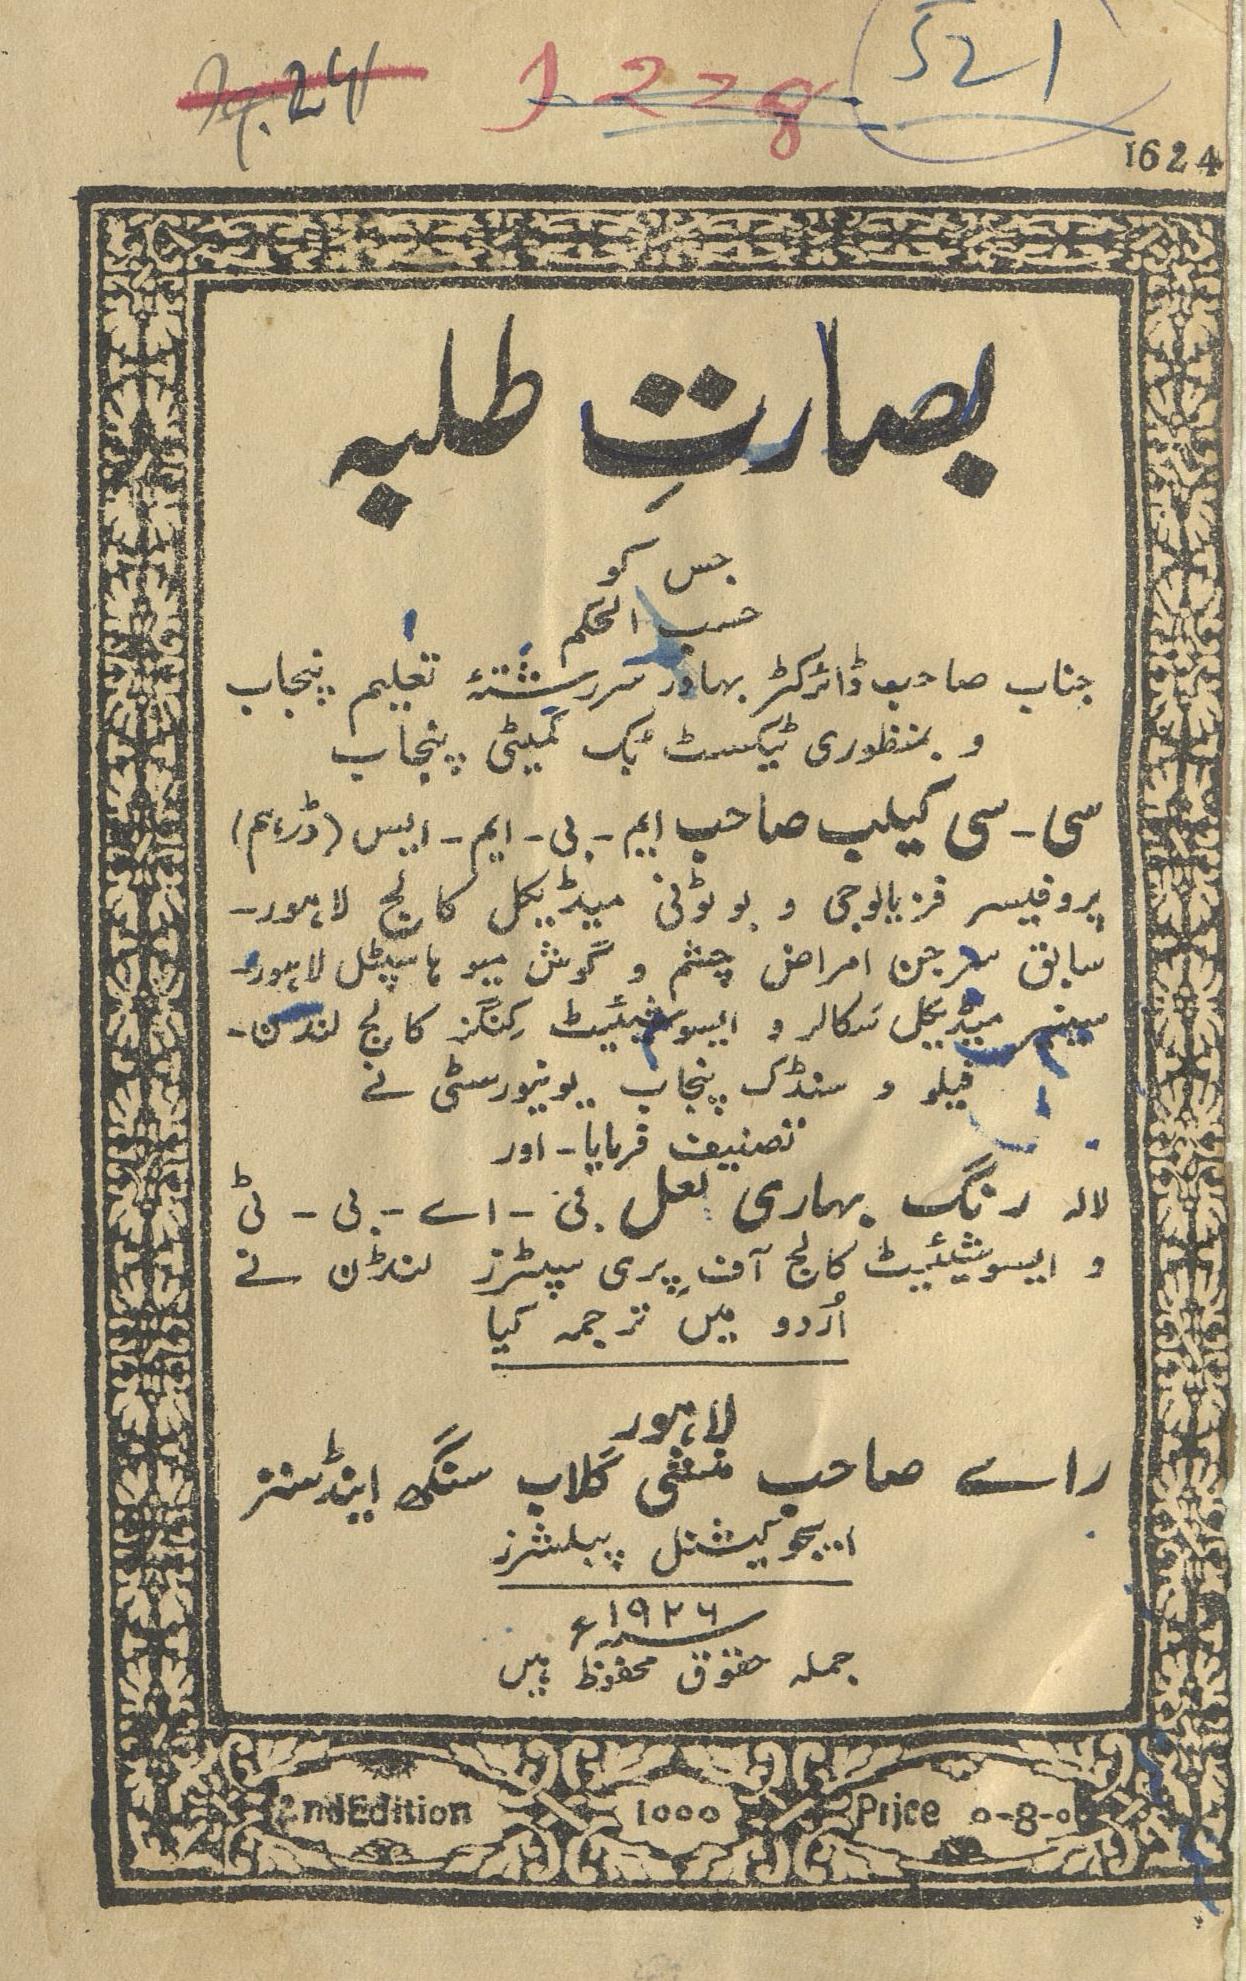 521
1228
1624
بصارتِ طلبہ
جس کو
حسب الحکم
جناب صاحب ڈائرکٹر بہادر سررشتۂ تعلیم پنجاب
و بمنظوری ٹیکسٹ بک کمیٹی پنجاب
سی - سی کیلب صاحب ایم - بی - ایم - ایس (ڈرہم)
پروفیسر فزیالوجی و بوٹونی میڈیکل کالج لاہور -
سابق سرجن امراض چشم و گوش میو ہاسپٹل لاہور -
سینیر میڈیکل سکالر و ایسوشیئیٹ کنگز کالج لندن -
فیلو و سنڈک پنجاب یونیورسٹی نے
تصنیف فرمایا - اور
لالہ رنگ بہاری لعل بی - اے - بی - ٹی
و ایسوشیئیٹ کالج آف پری سپٹرز لنڈن نے
اُردو میں ترجمہ کیا
لاہور
راے صاحب منشی گلاب سنگھ اینڈ سنز
ایجوکیشنل پبلشرز
۱۹۲۶ء
جملہ حقوق محفوظ ہیں
2nd Edition 1000 Price 0-8-0